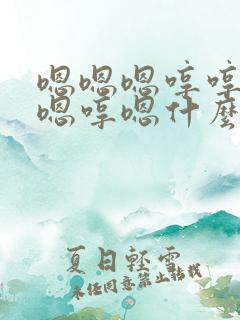 嗯嗯嗯哼哼
嗯哼嗯什麼
夏日輕雪
未经同意禁止转载